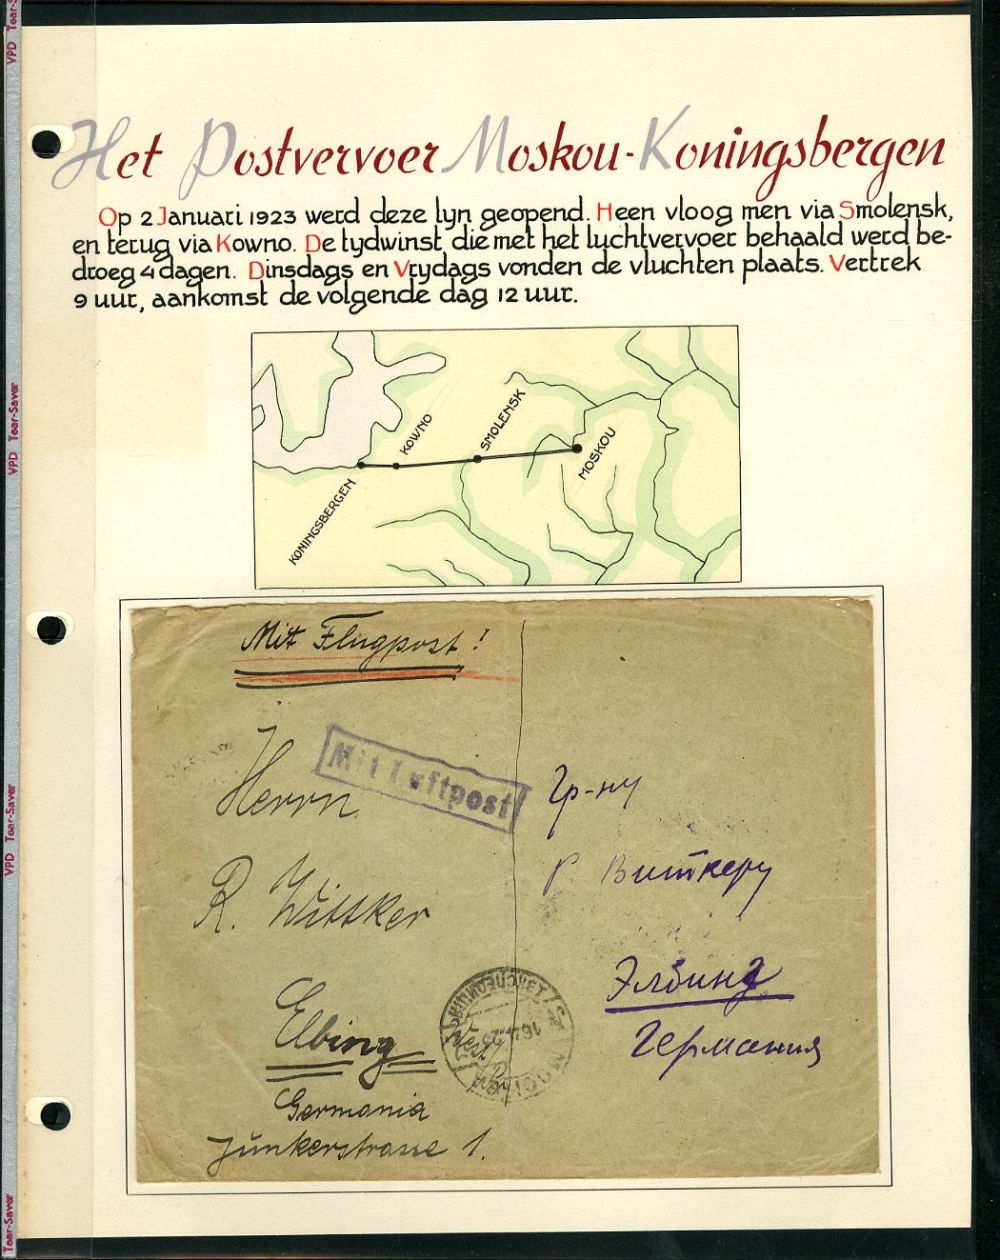 Het Postvervoer Moskou-Koningsbergen
Op 2 Januari 1923 werd deze lyn geopend. Heen vloog men via Smolensk,
en terug via Kowno. De tydwinst die met het luchtvervoer behaald werd be-
droeg 4 dagen. Dinsdags en Vrydags vonden de vluchten plaats. Vertrek
9 uur, aankomst de volgende dag 12 uur.
KONINGSBERGEN
KOWNO
SMOLENSK
MOSKOU
Mit Flugpost!
Mit Luftpost
Herrn
R. Wittker
Elbing
Germania
Junkerstrasse 1.
Гр-ну
Р Виткеру
Элбинг
Германия
VPD Tear-Saver
VPD Tear-Saver
VPD Tear-Saver
Tear-Saver